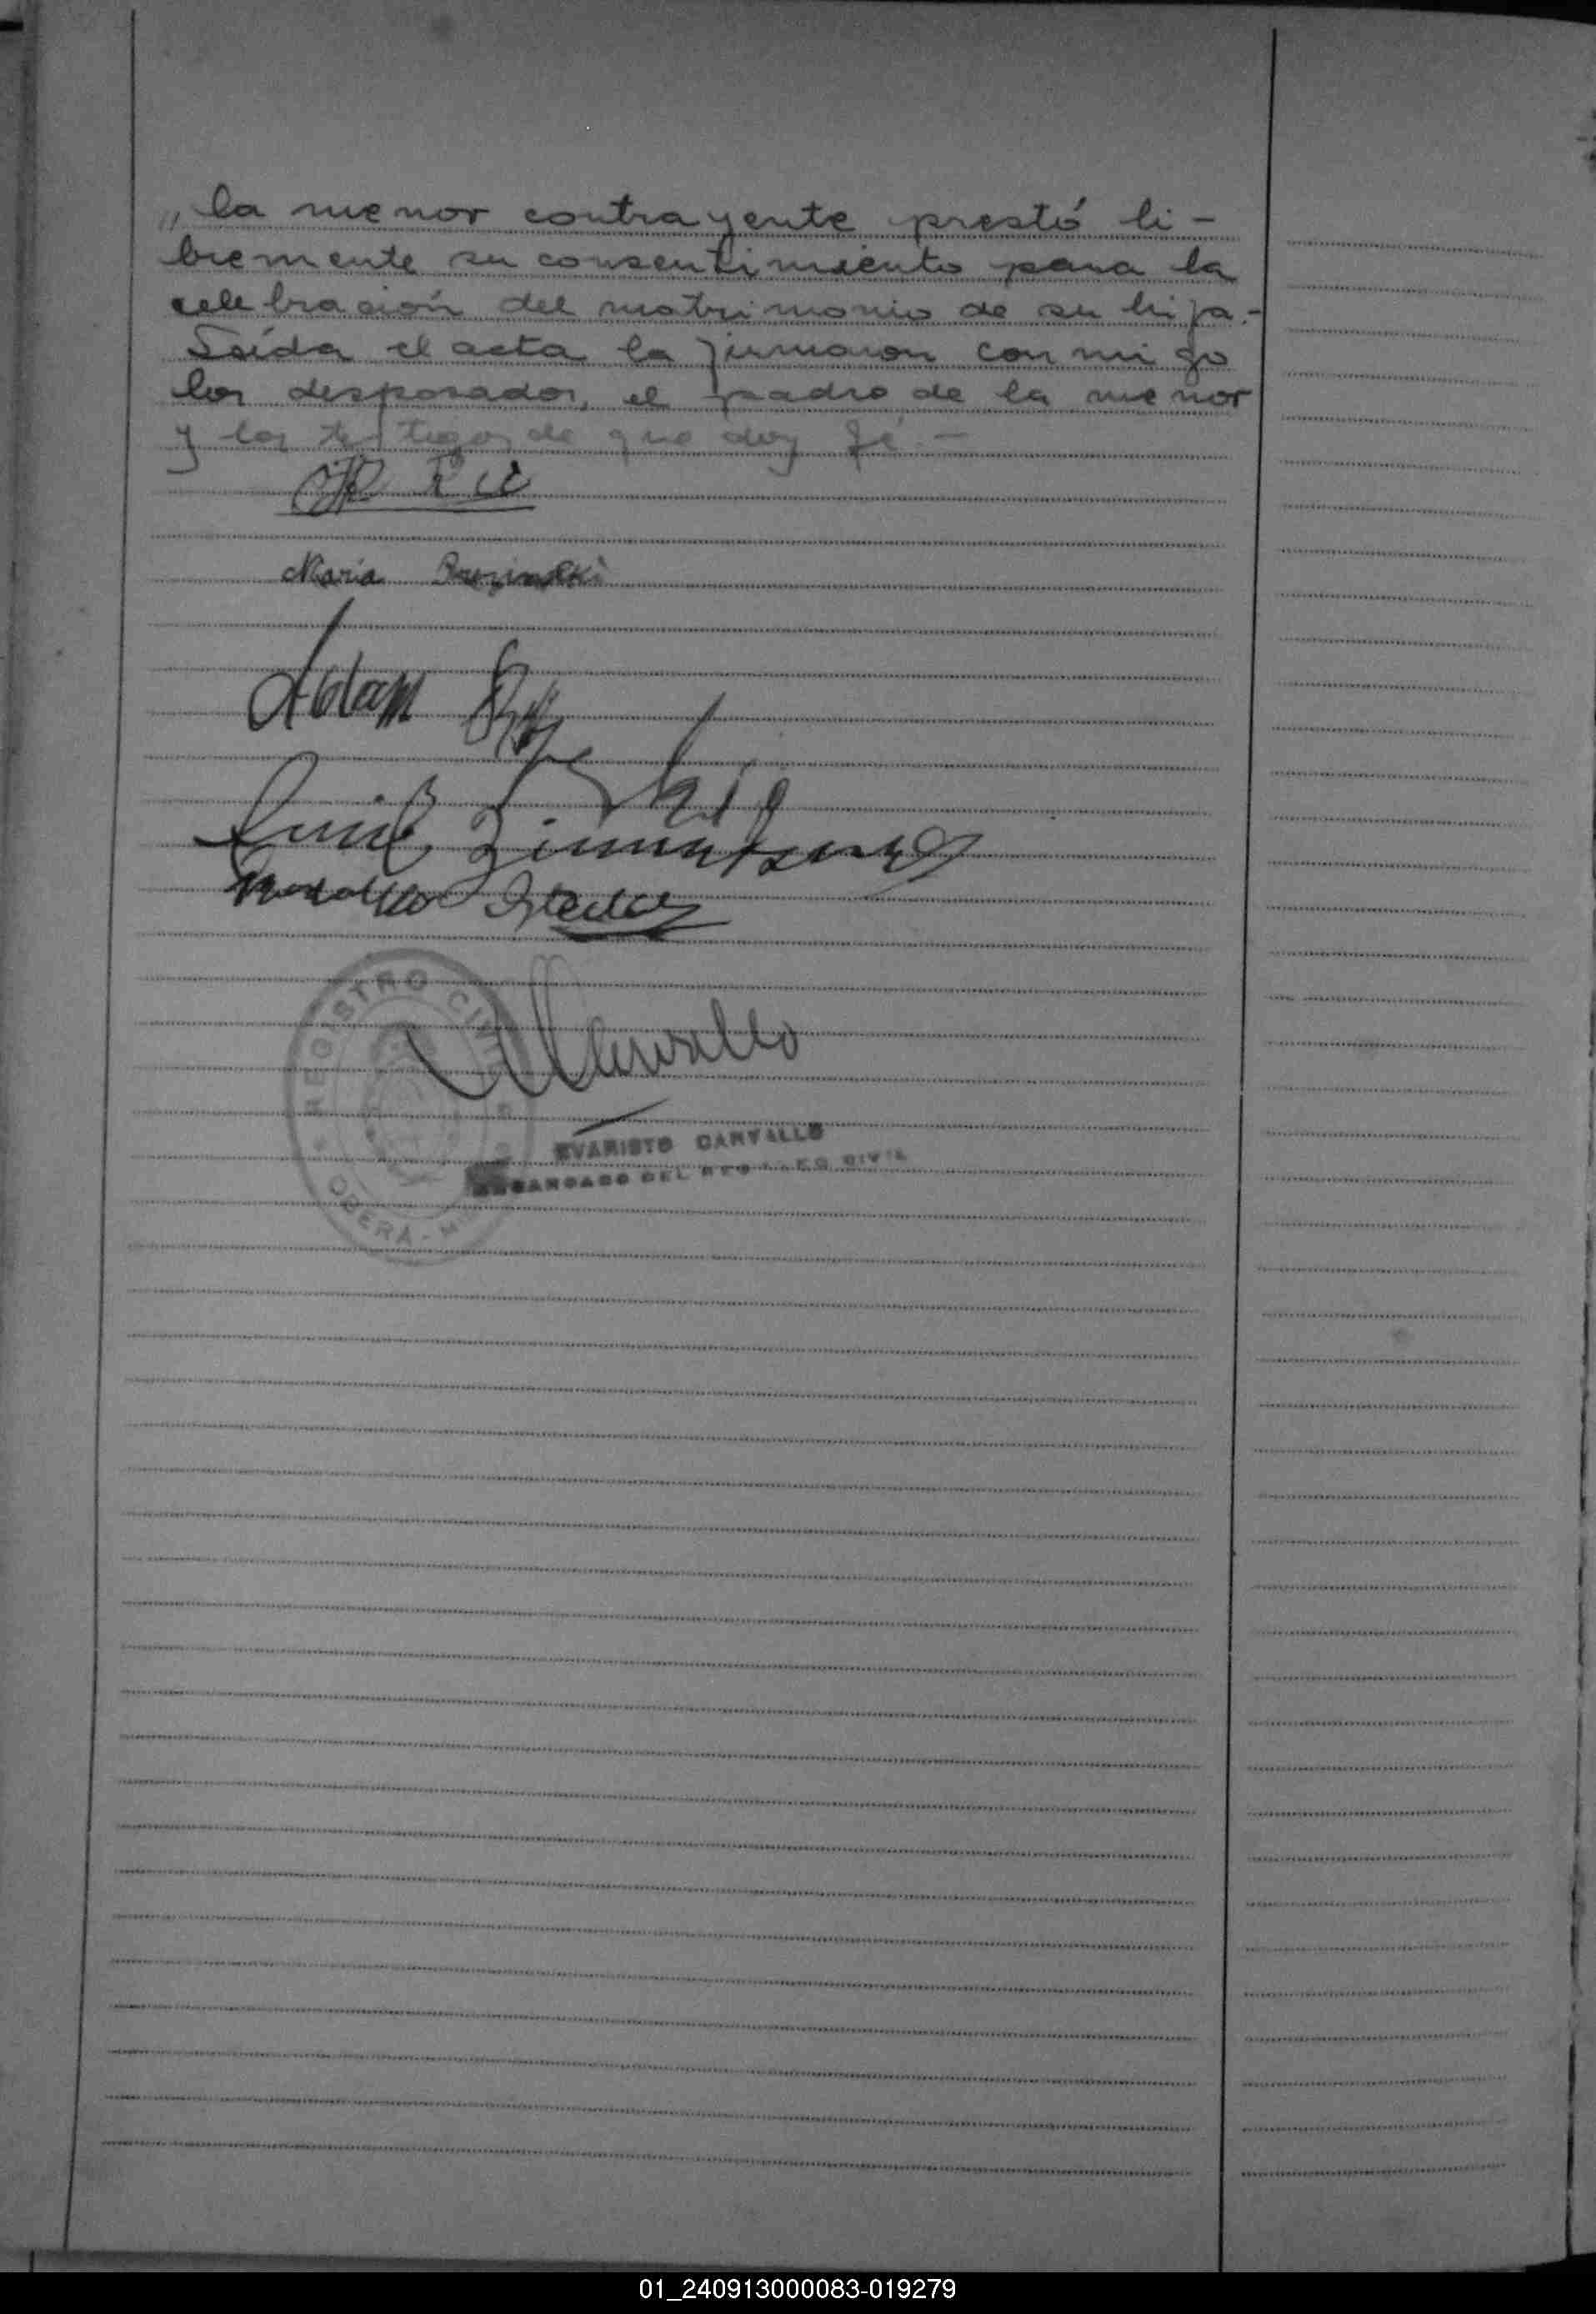 „ la menor contrayente prestó li-
bremente su consentimiento para la
celebración del matrimonio de su hija.-
Leída el acta la firmaron conmigo
los desposados, el padre de la menor
y los testigos de que doy fé. -
Maria
Adam
Emil Zimmermann
Rodolfo
REGISTRO CIVIL
OBERÁ - M
Carvallo
EVARISTO CARVALLO
ENCARGADO DEL REGISTRO CIVIL
01_240913000083-019279